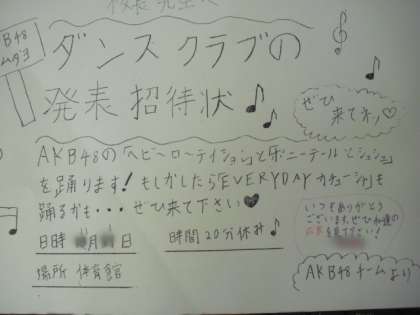 校長先生へ
ダンスクラブの
発表 招待状♪♪
ぜひ
来てネ!!♡
AKB48の「ヘビーローテイション」と「ポニーテールとシュシュ」
を踊ります! もしかしたら「EVERYDAYカチューシャ」も
踊るかも・・・ ぜひ来て下さい♥
日時 月 日
時間 20分休み♪
場所 体育館
いつもありがとう
ございます。ぜひ私達の
を見て下さい!
AKB48チームより